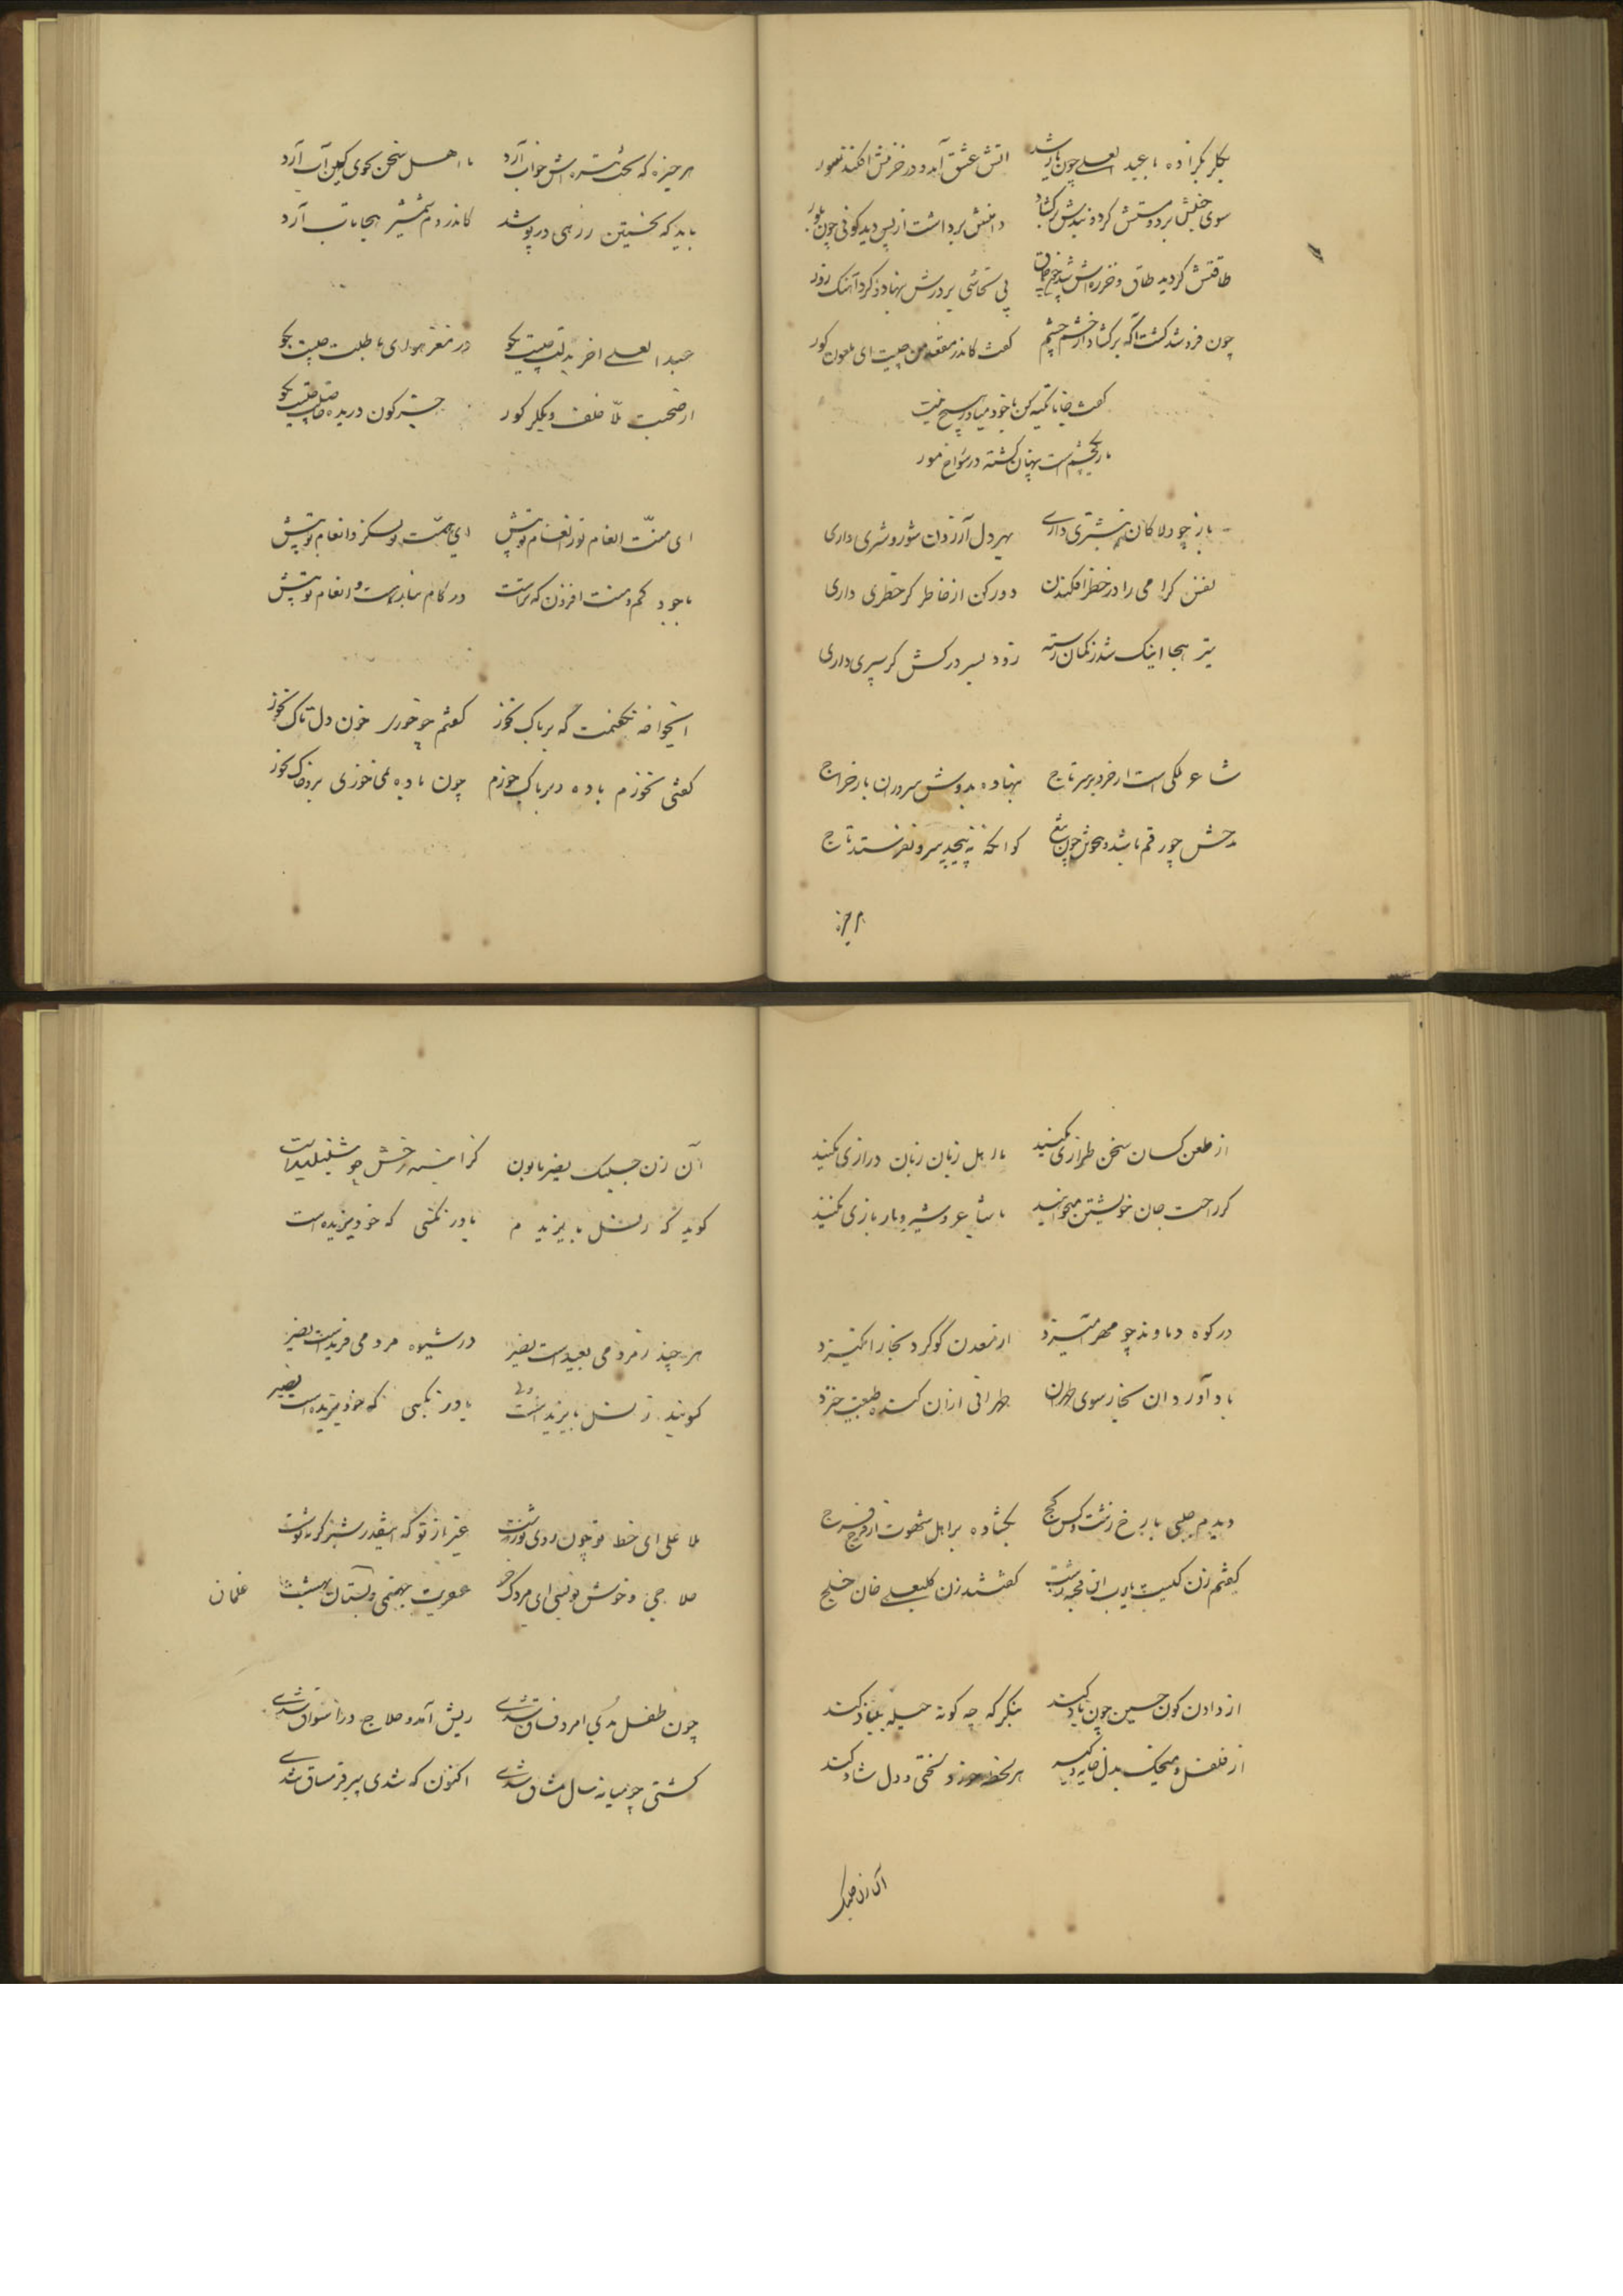 یکر بکزاده با عبدالعلی چون یار شد آتش عشق آمد و در خرمنش افکند شور
سوی خلیش برد و مستش کرد و بندش برکشاد دامنش برداشت از پس دید کونی چون بلور
طاقتش کردید طاق و خرزه اش شد بی تحاشی بر درش بنهاد و کرد آهنک زور
چون فرو شد کشت آکه برکشاد از خشم چشم کفت کاندر مقعد من چیست ای ملعون کور
کفت جانا تکیه کن با خود میاور هیچ نیست
مار یکچشم است پنهان کشته در سوراخ مور
باز چو دلاکان نیشتری داری بهر دل آزردن شور و شری داری
نفس کرامی را در خطر افکندن دور کن از خاطر کر خطری داری
تیر هجا اینک شد ز کمان رسته زود بسر درکش کر سپری داری
شاعر ملکی است از خرد بر سر تاج بنهاده بدوش سروران بار خراج
مدحش چو رقم باشد و هجوش چون تیغ کو آنکه نپیچید سر و نفرستد تاج
هر چیز
هر چیز که بخت تیره اش خواب آرد با اهل سخن کجوی کین آب آرد
باید که نخستین زرهی در پوشد کاندر دم شمشیر هجا تاب آرد
عبدالعلی آخر بدلت چیست بکو در مغز هوای با طلبت چیست بکو
از صحبت ملا خلف و یکلر کور جز کون دریده
ای منت انعام تو ز انعام تو بیش ای همت نوسکز و انعام تو بیش
با جود کم و منت افزون که تراست در کام نماید است و انعام تو بیش
ایخواجه نکفتمت که تریاک نخور کفتم چو خوری خون دل تاک نخور
کفتی نخورم باده و تریاک خورم چون باده نمی خوری برو خاک بخور
از طعن کسان سخن طرازی نکنید با اهل زبان زبان درازی نکنید
کر راحت جان خویشتن میخواهید با شاعر و شیر و مار بازی نکنید
در کوه دماوند چو مهر آمیزد از معدن کوکرد بخار انکیزد
باد آورد آن بخار سوی طهران طهرانی از آن کنده طبیعت خیزد
دیدم جلبی با رخ زشت و کس کج بکشاده بر اهل شهوت از فرج فرج
کفتم زن کیست یارب این قحبه زشت کفتند زن کلبعلی خان خلج
از دادن کون حسین چون یاد کند بنکر که چه کونه حیله بنیاد کند
از فلفل و میخک هر لحظه خورد لختی و دل شاد کند
آن زن جلبک
آن زن جلبک بصیر مابون کز آینه رخش چو شنبلید است
کوید که ز نسل بایزیدم باور نکنی که خود یزید است
هر چند ز مردمی بعید است بصیر در شیوه مردمی فرید است بصیر
کویند ز نسل بایزید است ولی باور نکنی که خود یزید است بصیر
ملا علی ای خط تو چون روی تو زشت غیر از تو که اینقدر شتر کربه نوشت
ملا جی و خوش نویسی ای مردک خر عفریت جهنمی و بستان بهشت
غلمان
چون طفل بدی امرد فساق شدی ریش آمد و حلاج در اسواق شدی
کشتی چو میانه سال مشاق شدی اکنون که شدی پیر قرمساق شدی